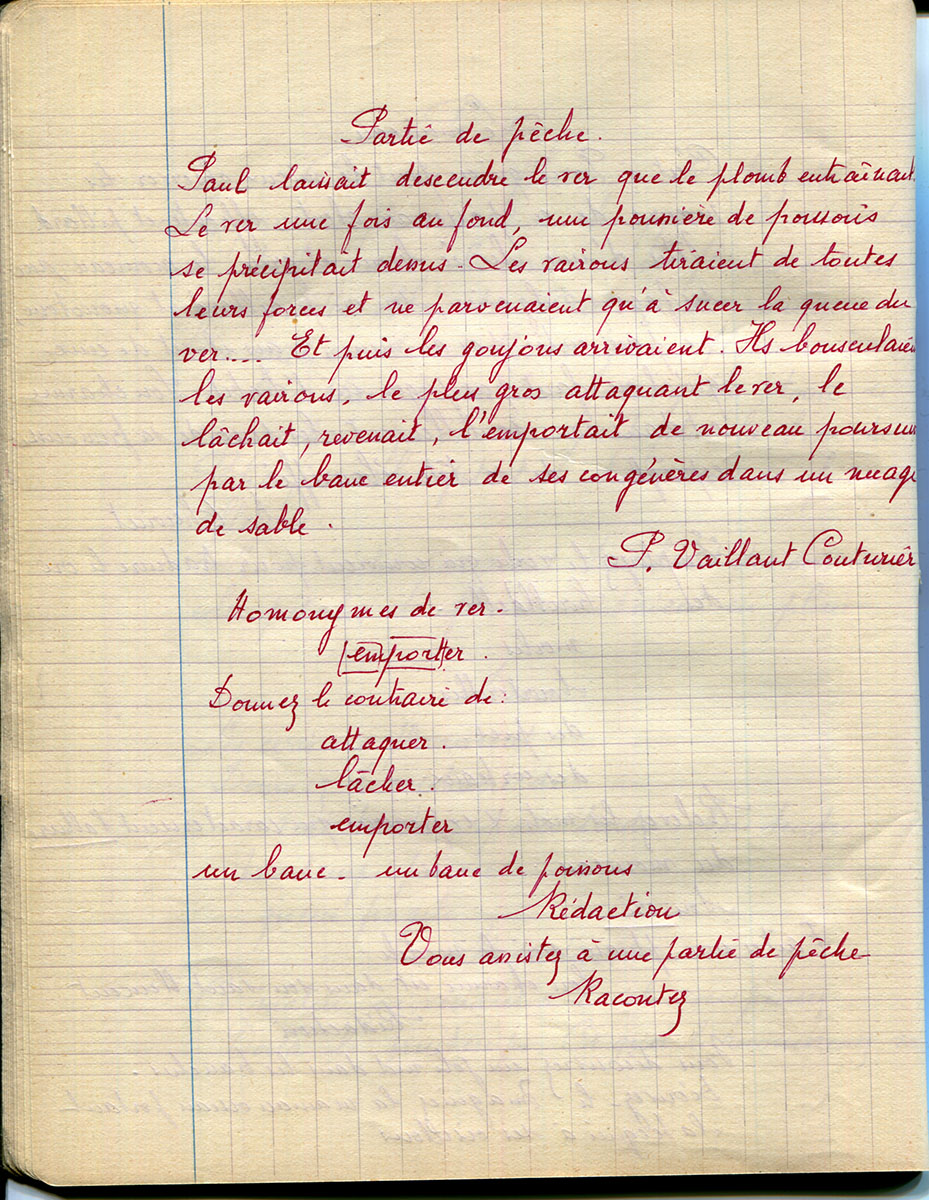 Partie de pêche.
Paul laissait descendre le ver que le plomb entraînait.
Le ver une fois au fond, une poussière de poissons
se précipitait dessus. Les vairons tiraient de toutes
leurs forces et ne parvenaient qu'à sucer la queue du
ver.... Et puis les goujons arrivaient. Ils bousculaient
les vairons, le plus gros attaquant le ver, le
lâchait, revenait, l'emportait de nouveau poursuivi
par le banc entier de ses congénères dans un nuage
de sable.
P. Vaillant Couturier
Homonymes de ver.
emporter.
Donnez le contraire de:
attaquer.
lâcher.
emporter
un banc - un banc de poissons
Rédaction
Vous assistez à une partie de pêche
Racontez